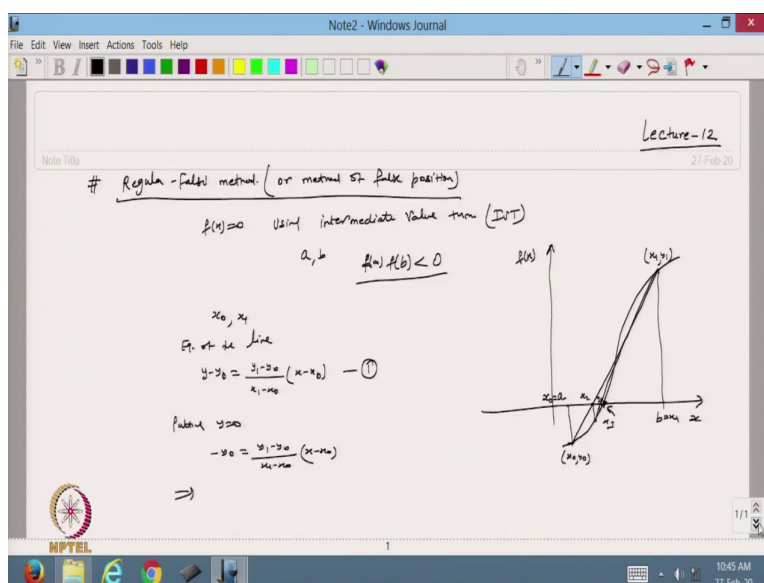 Note2 - Windows Journal
File Edit View Insert Actions Tools Help
B I
Lecture-12
Note Title
27-Feb-20
# Regula-Falsi method. (or method of false position)
f(x)=0 Using intermediate value (IVT)
a, b f(a) f(b) < 0
f(x)
(x1,y1)
x0, x1
Eq. of the line
y-y0 = y1-y0/x1-x0 (x-x0) — ①
x0=a x2 x3 b=x1 x
(x0,y0)
Putting y=0
-y0 = y1-y0/x1-x0 (x-x0)
⇒
NPTEL
1
1/1
10:45 AM
27-Feb-20